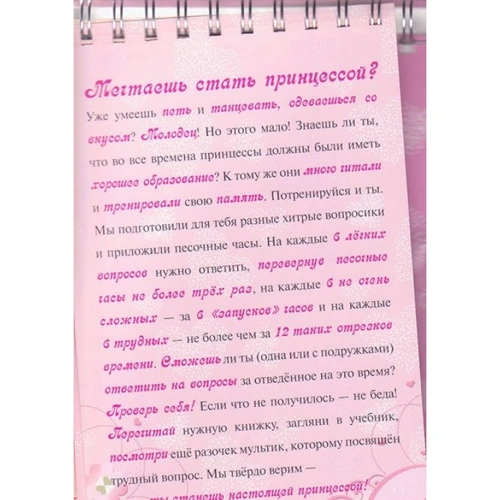 Мечтаешь стать принцессой?
Уже умеешь петь и танцевать, одеваешься со
вкусом? Молодец! Но этого мало! Знаешь ли ты,
что во все времена принцессы должны были иметь
хорошее образование? К тому же они много читали
и тренировали свою память. Потренируйся и ты.
Мы подготовили для тебя разные хитрые вопросики
и приложили песочные часы. На каждые 6 лёгких
вопросов нужно ответить, перевернув песочные
часы не более трёх раз, на каждые 6 не очень
сложных — за 6 «запусков» часов и на каждые
6 трудных — не более чем за 12 таких отрезков
времени. Сможешь ли ты (одна или с подружками)
ответить на вопросы за отведённое на это время?
Проверь себя! Если что не получилось — не беда!
Перечитай нужную книжку, загляни в учебник,
посмотри ещё разочек мультик, которому посвящён
трудный вопрос. Мы твёрдо верим —
ты станешь настоящей принцессой!